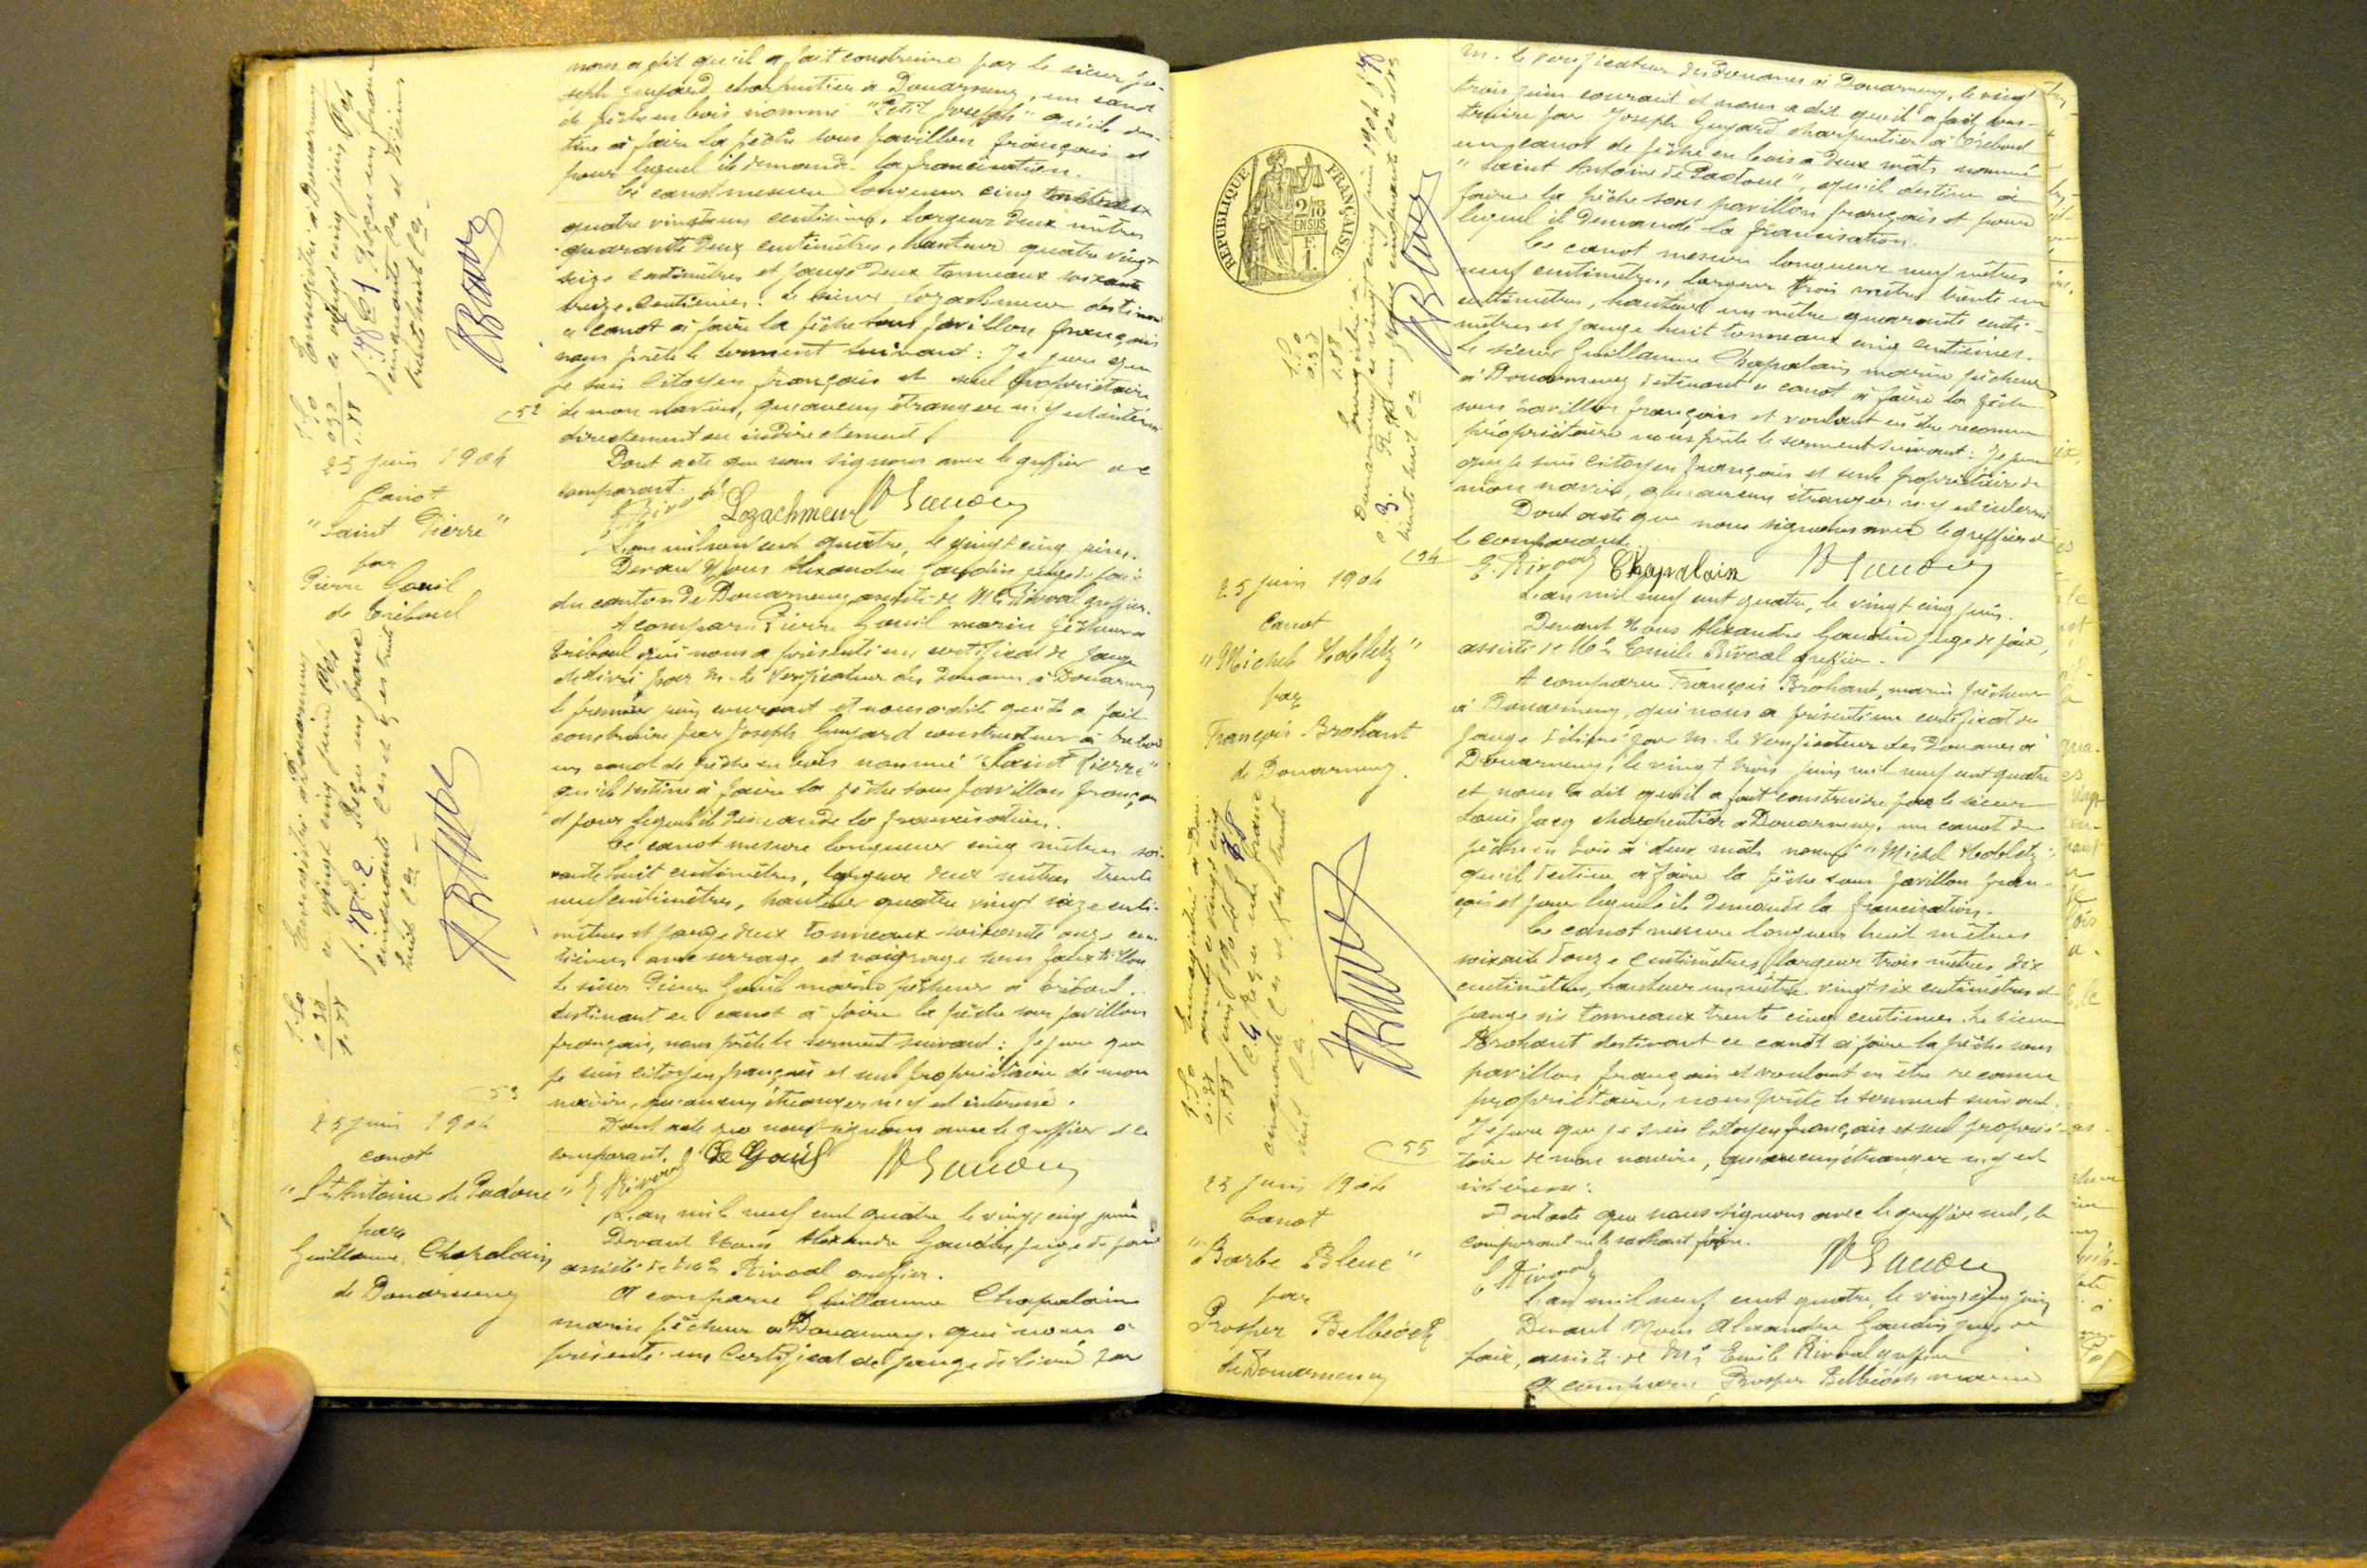 nous a dit qu'il a fait construire par le sieur Jo-
seph Guyard charpentier à Douarnenez, un canot
de pêche en bois nommé "Petit Joseph" qu'il des-
tine à faire la pêche sous pavillon français et
pour lequel il demande la francisation.
Ce canot mesure longueur cinq
quatre vingt centimètres, largeur deux mètres
quarante deux centimètres, hauteur quatre vingt
seize centimètres et jauge deux tonneaux soixante
treize centièmes. Le sieur Lozachmeur destinant
ce canot à faire la pêche sous pavillon français
nous prête le serment suivant : Je jure que
je suis citoyen français et seul propriétaire
de mon navire, qu'aucun étranger n'y est intéressé
directement ou indirectement.
Dont acte que nous signons avec le greffier et le
comparant.
E. Rivoal Lozachmeur A Gaudin
52
25 juin 1904
Canot
"Saint Pierre"
par
Pierre Gouil
de Tréboul
L'an mil neuf cent quatre, le vingt cinq juin.
Devant Nous Alexandre Gaudin juge de paix
du canton de Douarnenez, assisté de Me Rivoal greffier.
A comparu Pierre Gouil marin pêcheur à
Tréboul qui nous a présenté un certificat de jauge
délivré par M. le Vérificateur des Douanes à Douarnenez
le premier juin courant et nous a dit qu'il a fait
construire par Joseph Guyard constructeur à Tréboul
un canot de pêche en bois nommé "Saint Pierre"
qu'il destine à faire la pêche sous pavillon français
et pour lequel il demande la francisation.
Ce canot mesure longueur cinq mètres soi-
xante huit centimètres, largeur deux mètres trente
neuf centimètres, hauteur quatre vingt seize centi-
mètres et jauge deux tonneaux soixante onze cen-
tièmes avec serrage et vaigrage sans faux tillac
Le sieur Pierre Gouil marin pêcheur à Tréboul
destinant ce canot à faire la pêche sous pavillon
français, nous prête le serment suivant : Je jure que
je suis citoyen français et seul propriétaire de mon
navire, qu'aucun étranger n'y est intéressé.
Dont acte que nous signons avec le greffier et le
comparant.
E. Rivoal A Gaudin
53
25 juin 1904
canot
"St Antoine de Padoue"
par
Guillaume Chapalain
de Douarnenez
L'an mil neuf cent quatre le vingt cinq juin
Devant Nous Alexandre Gaudin juge de paix
assisté de Me Rivoal greffier.
A comparu Guillaume Chapalain
marin pêcheur à Douarnenez, qui nous a
présenté un certificat de jauge délivré par
Enregistré à Douarnenez
ce vingt cinq juin
Reçu un franc
cinquante ces et décimes
trente huit ces
1.50
0.38
1.88
Enregistré à Douarnenez
ce vingt cinq juin
Reçu un franc
cinquante ces et ces trente
huit ces
1.50
0.38
1.88
M. le vérificateur des Douanes à Douarnenez, le vingt
trois juin courant et nous a dit qu'il a fait cons-
truire par Joseph Guyard charpentier à Tréboul
un canot de pêche en bois à deux mâts nommé
"Saint Antoine de Padoue", qu'il destine à
faire la pêche sous pavillon français et pour
lequel il demande la francisation.
Ce canot mesure longueur neuf mètres
neuf centimètres, largeur trois mètres trente un
centimètres, hauteur un mètre quarante centi-
mètres et jauge huit tonneaux cinq centièmes.
Le sieur Guillaume Chapalain marin pêcheur
à Douarnenez destinant ce canot à faire la pêche
sous pavillon français et voulant en être reconnu
propriétaire nous prête le serment suivant : Je jure
que je suis citoyen français et seul propriétaire de
mon navire, qu'aucun étranger n'y est intéressé
Dont acte que nous signons avec le greffier et
le comparant.
E. Rivoal Chapalain A Gaudin
RÉPUBLIQUE FRANÇAISE
54
25 juin 1904
Canot
"Michel Nobletz"
par
François Brohant
de Douarnenez.
L'an mil neuf cent quatre, le vingt cinq juin.
Devant Nous Alexandre Gaudin juge de paix,
assisté de Me Emile Rivoal greffier.
A comparu François Brohant, marin pêcheur
à Douarnenez, qui nous a présenté un certificat de
jauge délivré par M. le Vérificateur des Douanes à
Douarnenez, le vingt trois juin mil neuf cent quatre
et nous a dit qu'il a fait construire par le sieur
Louis Jacq charpentier à Douarnenez, un canot de
pêche en bois à deux mâts nommé "Michel Nobletz"
qu'il destine à faire la pêche sous pavillon fran-
çais et pour lequel il demande la francisation.
Ce canot mesure longueur huit mètres
soixante douze centimètres, largeur trois mètres dix
centimètres, hauteur un mètre vingt six centimètres et
jauge six tonneaux trente cinq centièmes. Le sieur
Brohant destinant ce canot à faire la pêche sous
pavillon français et voulant en être reconnu
propriétaire, nous prête le serment suivant.
Je jure que je suis citoyen français et seul proprié-
taire de mon navire, qu'aucun étranger n'y est
intéressé.
Dont acte que nous signons avec le greffier seul, le
comparant ne le sachant faire.
E. Rivoal A Gaudin
55
25 juin 1904
Canot
"Barbe Bleue"
par
Prosper Belbéoch
de Douarnenez
L'an mil neuf cent quatre, le vingt cinq juin
Devant Nous Alexandre Gaudin juge de
paix, assisté de Me Emile Rivoal greffier
A comparu Prosper Belbéoch marin